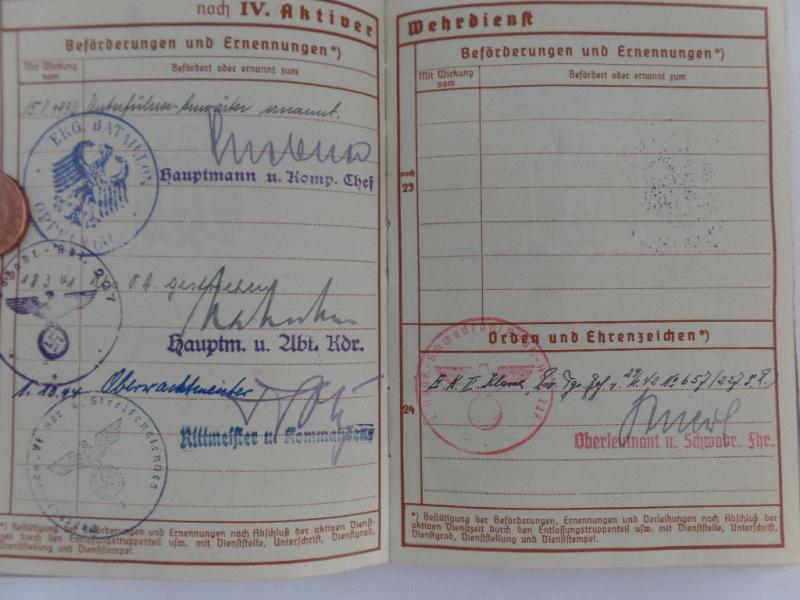 noch IV. Aktiver
Beförderungen und Ernennungen*)
Mit Wirkung
vom
Befördert oder ernannt zum
ernannt.
ERG. BATAILLON
Hauptmann u. Komp. Chef
18.3.41
gestrichen
Hauptm. u. Abt. Kdr.
1.10.44 Oberwachtmeister
Rittmeister u.
*) Bestätigung der Beförderungen und Ernennungen nach Abschluß der aktiven Dienst-
zeit durch den Entlassungstruppenteil usw. mit Dienststelle, Unterschrift, Dienstgrad,
Dienststellung und Dienststempel.
Wehrdienst
Beförderungen und Ernennungen*)
Mit Wirkung
vom
Befördert oder ernannt zum
noch
23
Orden und Ehrenzeichen*)
E.K. II. Klasse,
No 657/227
24
Oberleutnant u. Schwadr. Fhr.
*) Bestätigung der Beförderungen, Ernennungen und Verleihungen nach Abschluß der
aktiven Dienstzeit durch den Entlassungstruppenteil usw. mit Dienststelle, Unterschrift,
Dienstgrad, Dienststellung und Dienststempel.